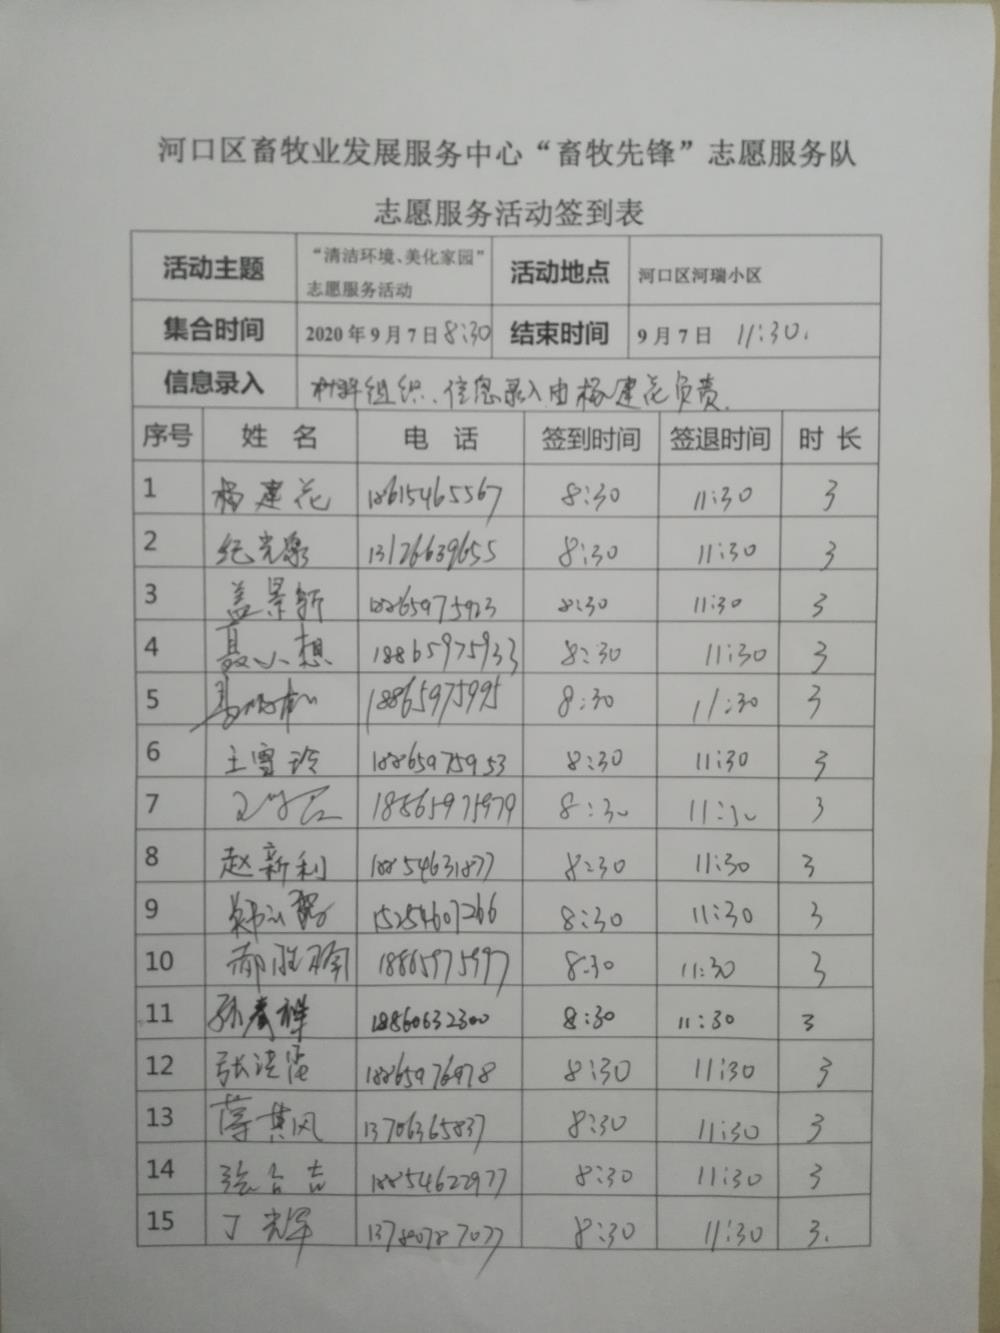 河口区畜牧业发展服务中心“畜牧先锋”志愿服务队
志愿服务活动签到表
活动主题 “清洁环境、美化家园”志愿服务活动 活动地点 河口区河瑞小区
集合时间 2020年9月7日8:30 结束时间 9月7日 11:30.
信息录入 材料组织、信息录入由杨建花负责.
序号 姓 名 电 话 签到时间 签退时间 时 长
1 杨建花 18615465567 8:30 11:30 3
2 纪光 13176639655 8:30 11:30 3
3 盖景新 18865975923 8:30 11:30 3
4 聂小想 18865975933 8:30 11:30 3
5 18865975995 8:30 11:30 3
6 王雪玲 18865975953 8:30 11:30 3
7 18865975979 8:30 11:30 3
8 赵新利 18854631877 8:30 11:30 3
9 15254607266 8:30 11:30 3
10 郝胜 18865975997 8:30 11:30 3
11 孙 祥 18860632300 8:30 11:30 3
12 张洪 18865976978 8:30 11:30 3
13 薛其风 13706365837 8:30 11:30 3
14 张合吉 18854622977 8:30 11:30 3
15 丁光军 13780787077 8:30 11:30 3.